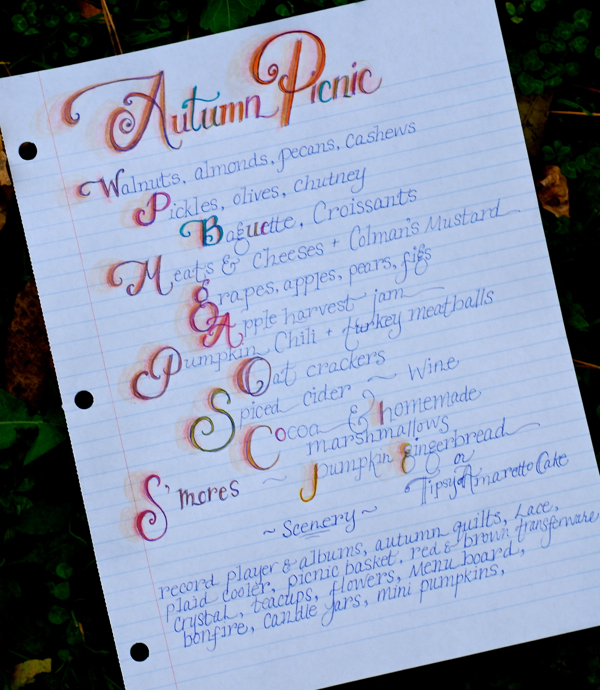 Autumn Picnic
Walnuts, almonds, pecans, cashews
Pickles, olives, chutney
Baguette, Croissants
Meats & Cheeses + Colman's Mustard
grapes, apples, pears, figs
Apple harvest jam
Pumpkin Chili + turkey meatballs
Oat crackers
Spiced cider ~ Wine
Cocoa & homemade
marshmallows
S'mores ~ pumpkin gingerbread
or
Tipsy Amaretto Cake
~ Scenery ~
record player & albums, autumn quilts, Lace,
plaid cooler, picnic basket, red & brown transferware
crystal, teacups, flowers, Menu board,
bonfire, candle jars, mini pumpkins,